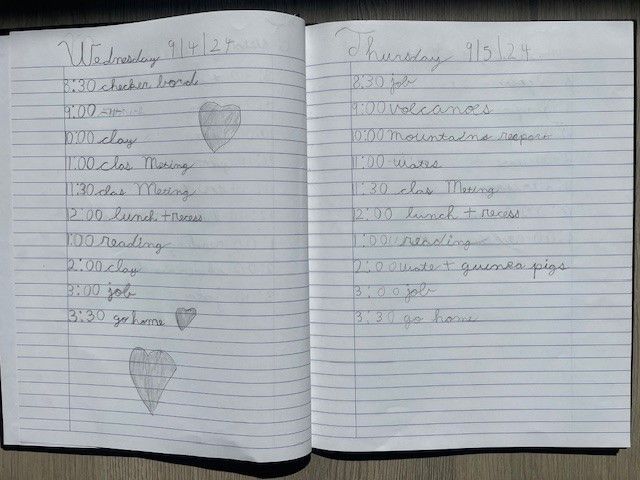 Wednesday 9/4/24
8:30 checker bord
9:00
10:00 clay
11:00 clas Meting
11:30 clas Meting
12:00 lunch + recess
1:00 reading
2:00 clay
3:00 job
3:30 go home
Thursday 9/5/24
8:30 job
9:00 volcanoes
10:00 mountains
11:00 wates
11:30 clas Meting
12:00 lunch + recess
1:00 reading
2:00 wate + guinea pigs
3:00 job
3:30 go home